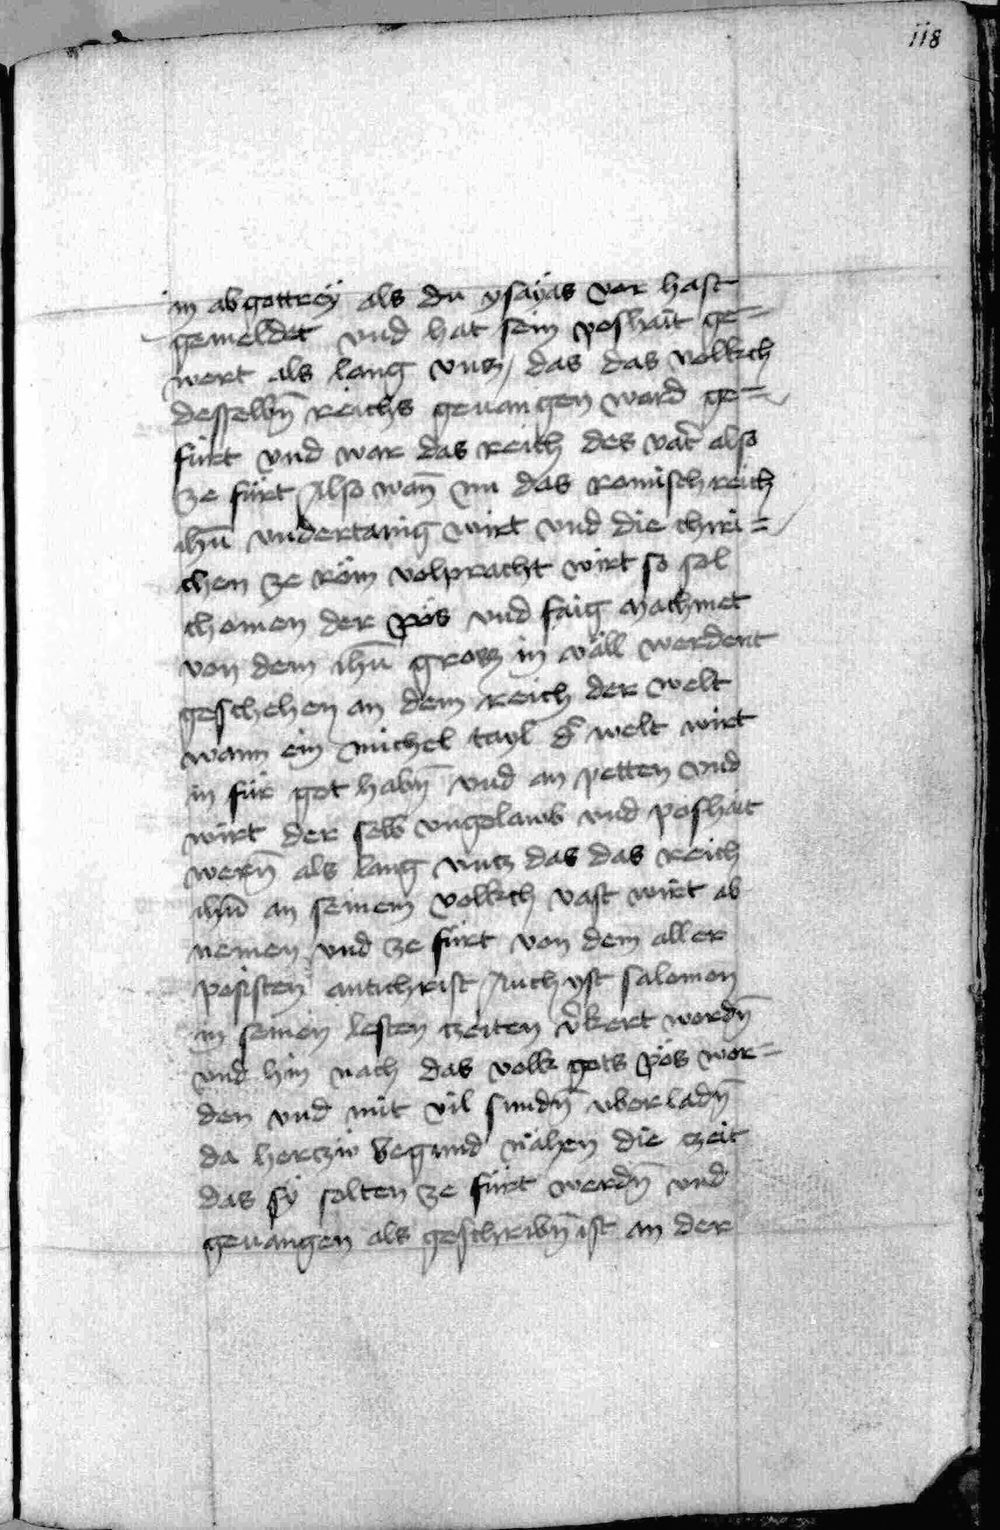 118
in abgottrey als du ysayas vor hast
gemeldet vnd hat sein poshait ge=
wert als lang vncz das das volkch
desselbn̄ reichs geuangen ward ge=
fürt vnd war das reich des vat̄ also
ze fürt Also wan̄ nu das romisch reich
ihū vndertanig wirt vnd die chiri=
chen ze röm volpracht wirt so sol
chomen der pös vnd faig machmet
von dem ihū gross in väll werdent
geschehen an dem reich der welt
wann ein michel tayl d̄ welt wirt
in für got habn̄ vnd an petten vnd
wirt der selb vngelawb vnd poshait
wern̄ als lang vncz das das reich
ihū an seinem volkch vast wirt ab
nemen vnd ze fürt von dem aller
posisten antichrist Auch yst salomon
in seinen lesten czeiten v̄kert wordn̄
vnd hin nach das volk gots pös wor=
den vnd mit vil sundn̄ vberladn̄
da herczw begund nähen die czeit
das sy solten ze fürt werdn̄ vnd
geuangen als geschribn̄ ist an der